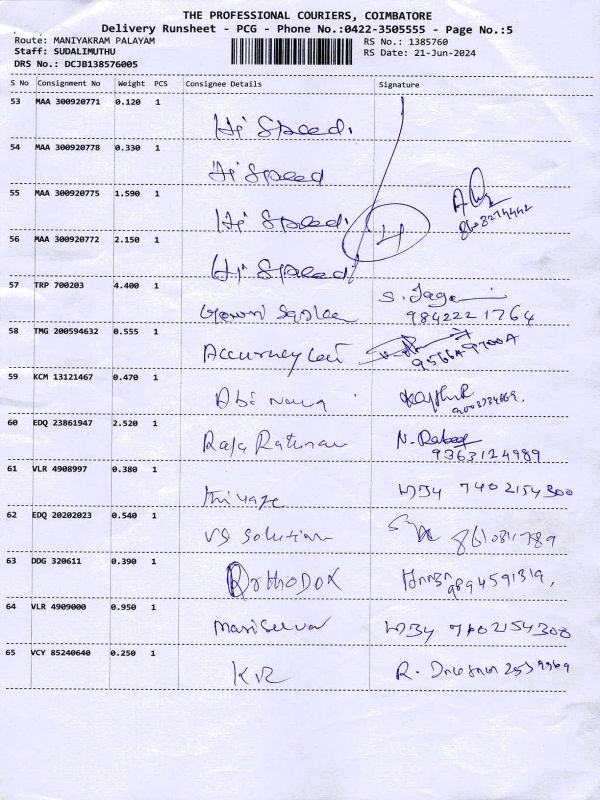 THE PROFESSIONAL COURIERS, COIMBATORE
Delivery Runsheet - PCG - Phone No.:0422-3505555 - Page No.:5
Route: MANIYAKRAM PALAYAM RS No.: 1385760
Staff: SUDALIMUTHU RS Date: 21-Jun-2024
DRS No.: DCJB138576005
S No Consignment No Weight PCS Consignee Details Signature
53 MAA 300920771 0.120 1
Hi Speed.
54 MAA 300920778 0.330 1
Hi Speed
55 MAA 300920775 1.590 1
Hi Speed. 4
56 MAA 300920772 2.150 1
Hi Speed
57 TRP 700203 4.400 1
S. Jaga
9842221764
58 TMG 200594632 0.555 1
59 KCM 13121467 0.470 1
60 EDQ 23861947 2.520 1
Raja N.
9363124989
61 VLR 4908997 0.380 1
7402154300
62 EDQ 20202023 0.540 1
VS Solution
63 DDG 320611 0.390 1
Orthodox
64 VLR 4909000 0.950 1
7402154300
65 VCY 85240640 0.250 1
KVR R.